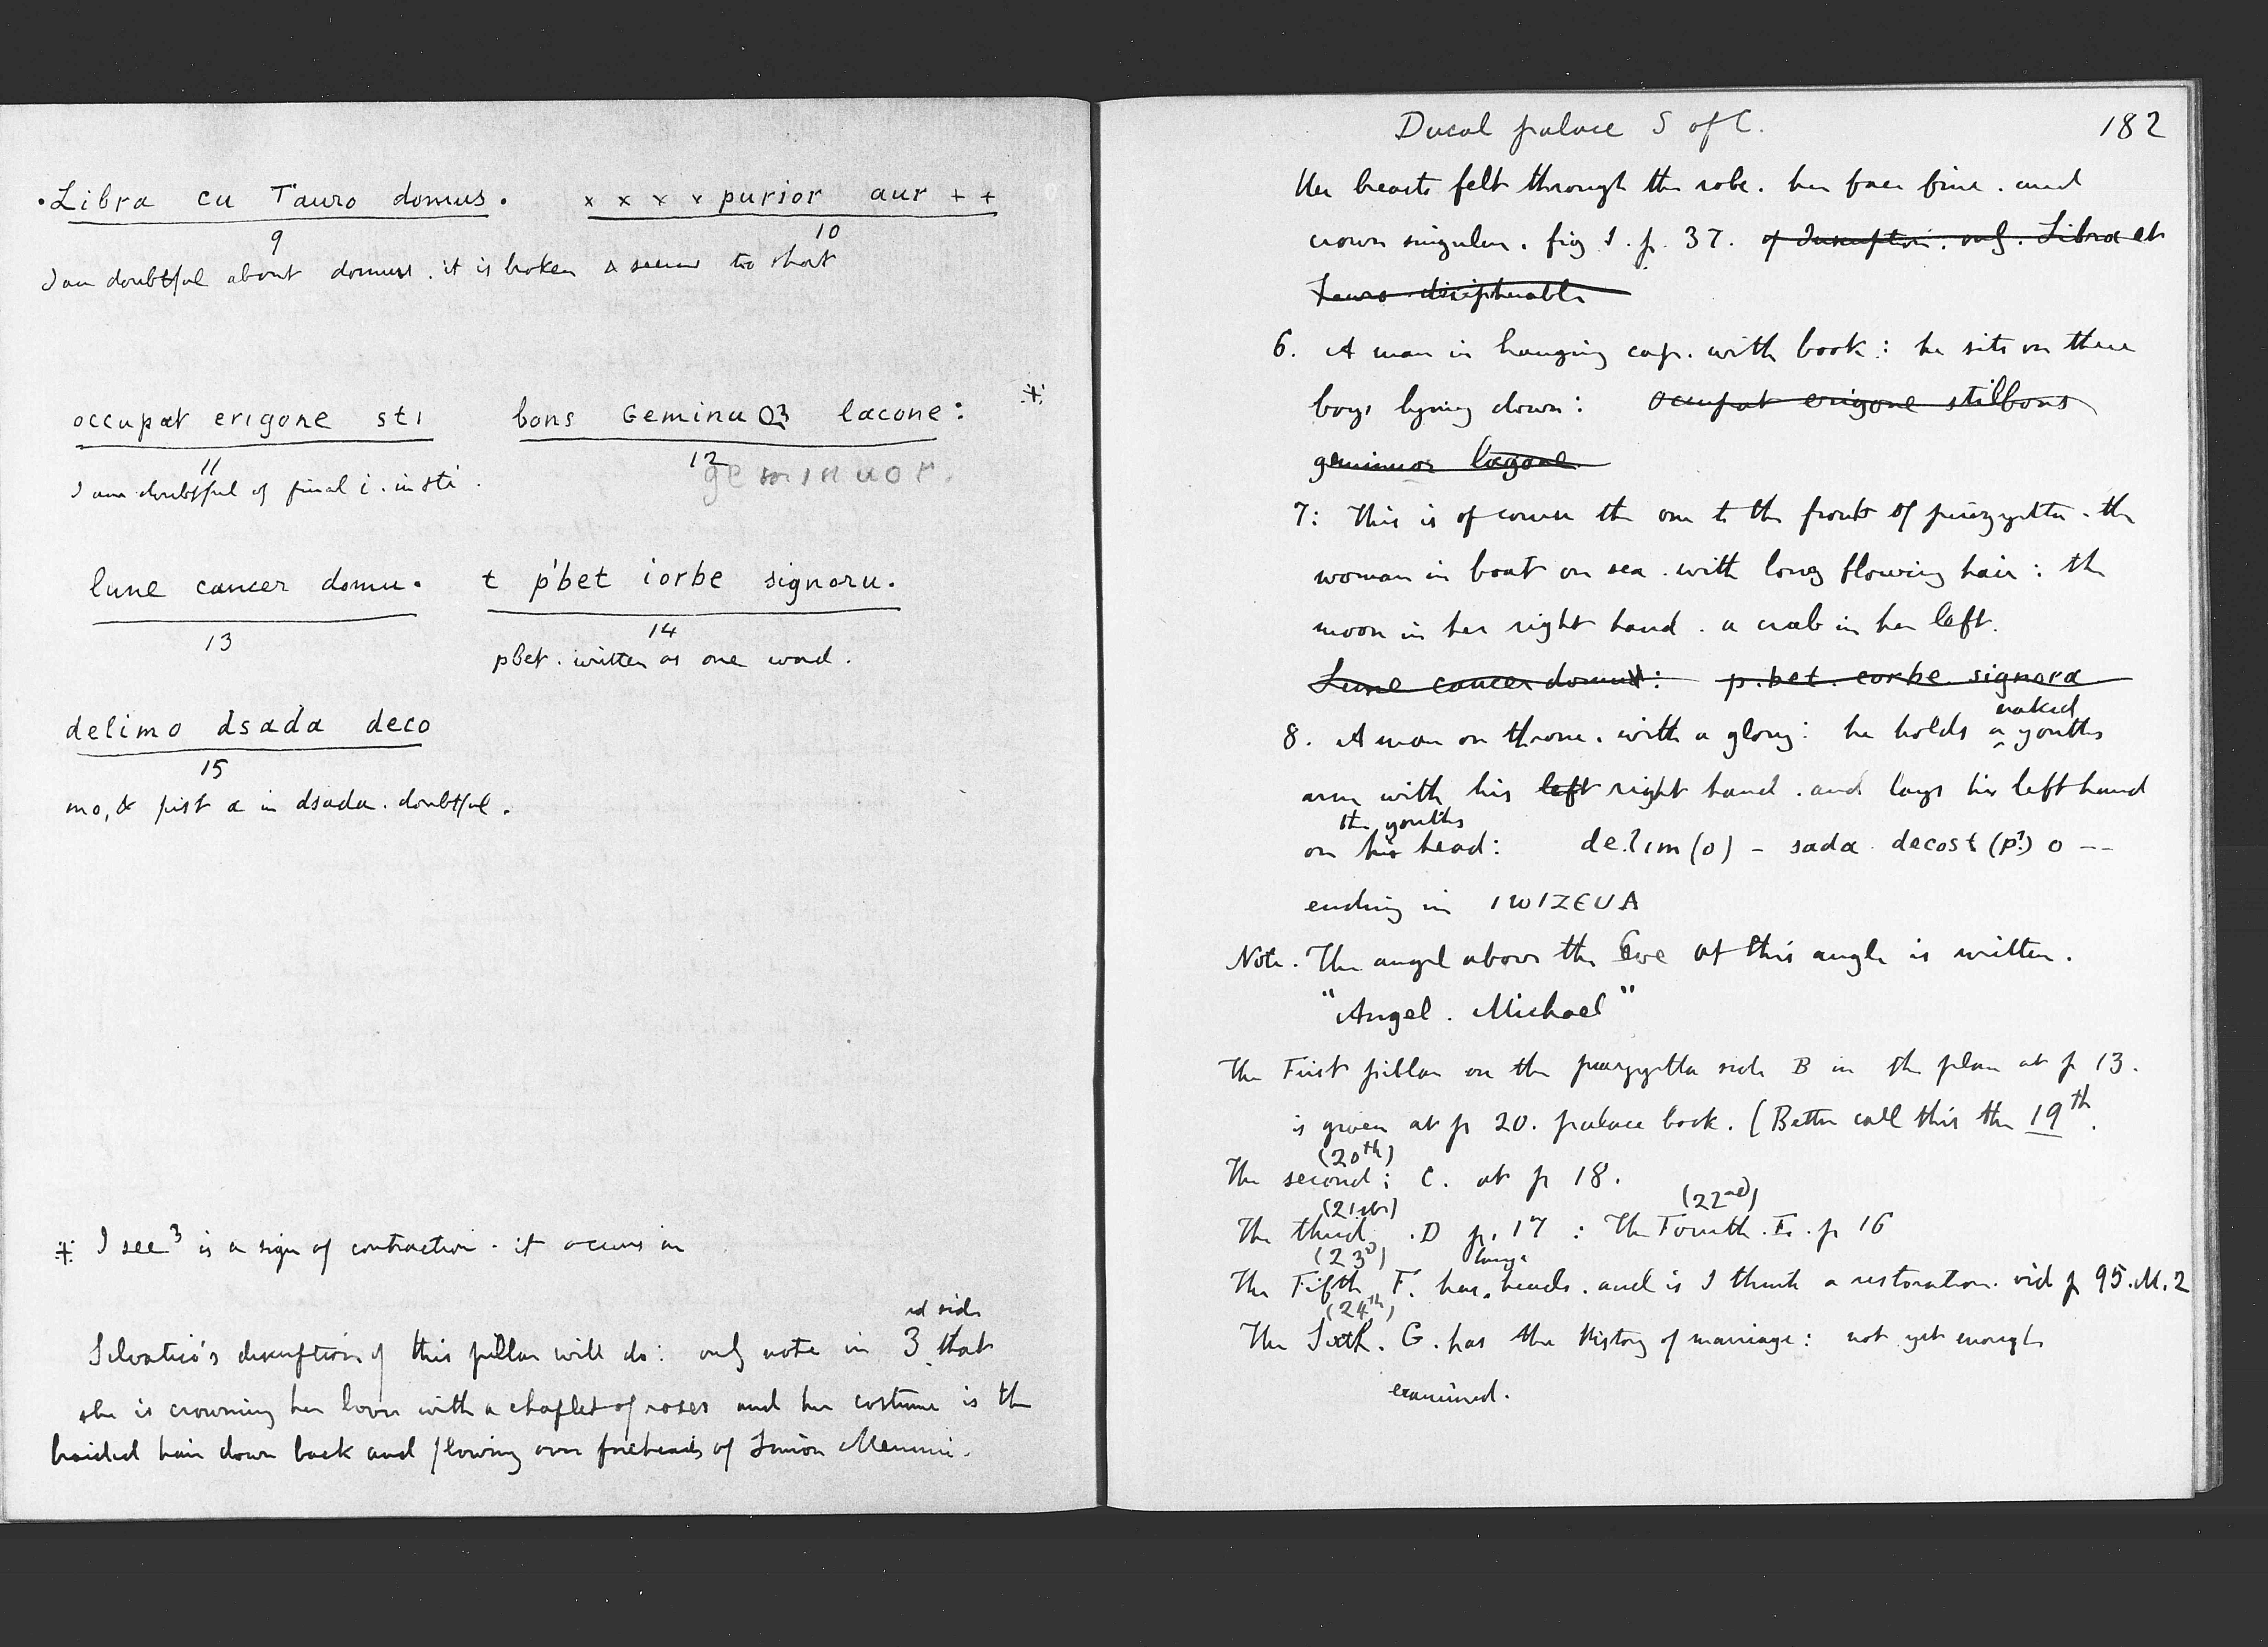 ·Libra cu Tauro domus. x x x x purior aur + +
9 10
I am doubtful about domus. it is broken & seems too short
occupat erigone sti bons Geminu O3 lacone:
11 12
I am doubtful of final i. in sti. geminuor.
lune cancer domu. t p'bet iorbe signoru.
13 14
pbet. written as one word.
delimo dsada deco
15
mo, & first a in dsada. doubtful.
I see 3 is a sign of contraction. it occurs in
Selvatico's description of this pillar will do: only note in 3 rd side that
she is crowning her lover with a chaplet of roses and her costume is the
braided hair down back and flowing over foreheads of Simon Memmi.
Ducal palace S of C. 182
Her breasts felt through the robe. her face fine. and
crown singular. fig 1. p. 37. of Inscription. only. Libra et
Tauro decipherable
6. A man in hanging cap. with book: he sits on three
boys lying down: occupat erigone stilbons
geminuor lagone.
7: This is of course the one to the front of piazzetta. the
woman in boat on sea. with long flowing hair: the
moon in her right hand. a crab in her left.
Lune cancer domu: p.bet. eorbe signora
8. A man on throne. with a glory: he holds a naked youths
arm with his left right hand. and lays his left hand
on his the youths head: delim(o) - sada decost (p?) o --
ending in IWIZEUA
Note. The angel above the Eve at this angle is written.
"Angel. Michael"
The First pillar on the piazzetta side B in the plan at p 13.
is given at p 20. palace book. (Better call this the 19th.
The second: (20th) C. at p 18.
The third (21st). D p. 17 : The Fourth (22nd). E. p 16
The Fifth (23d) F. has large heads. and is I think a restoration. vid p 95. M. 2
The Sixth (24th). G. has the History of marriage: not yet enough
examined.